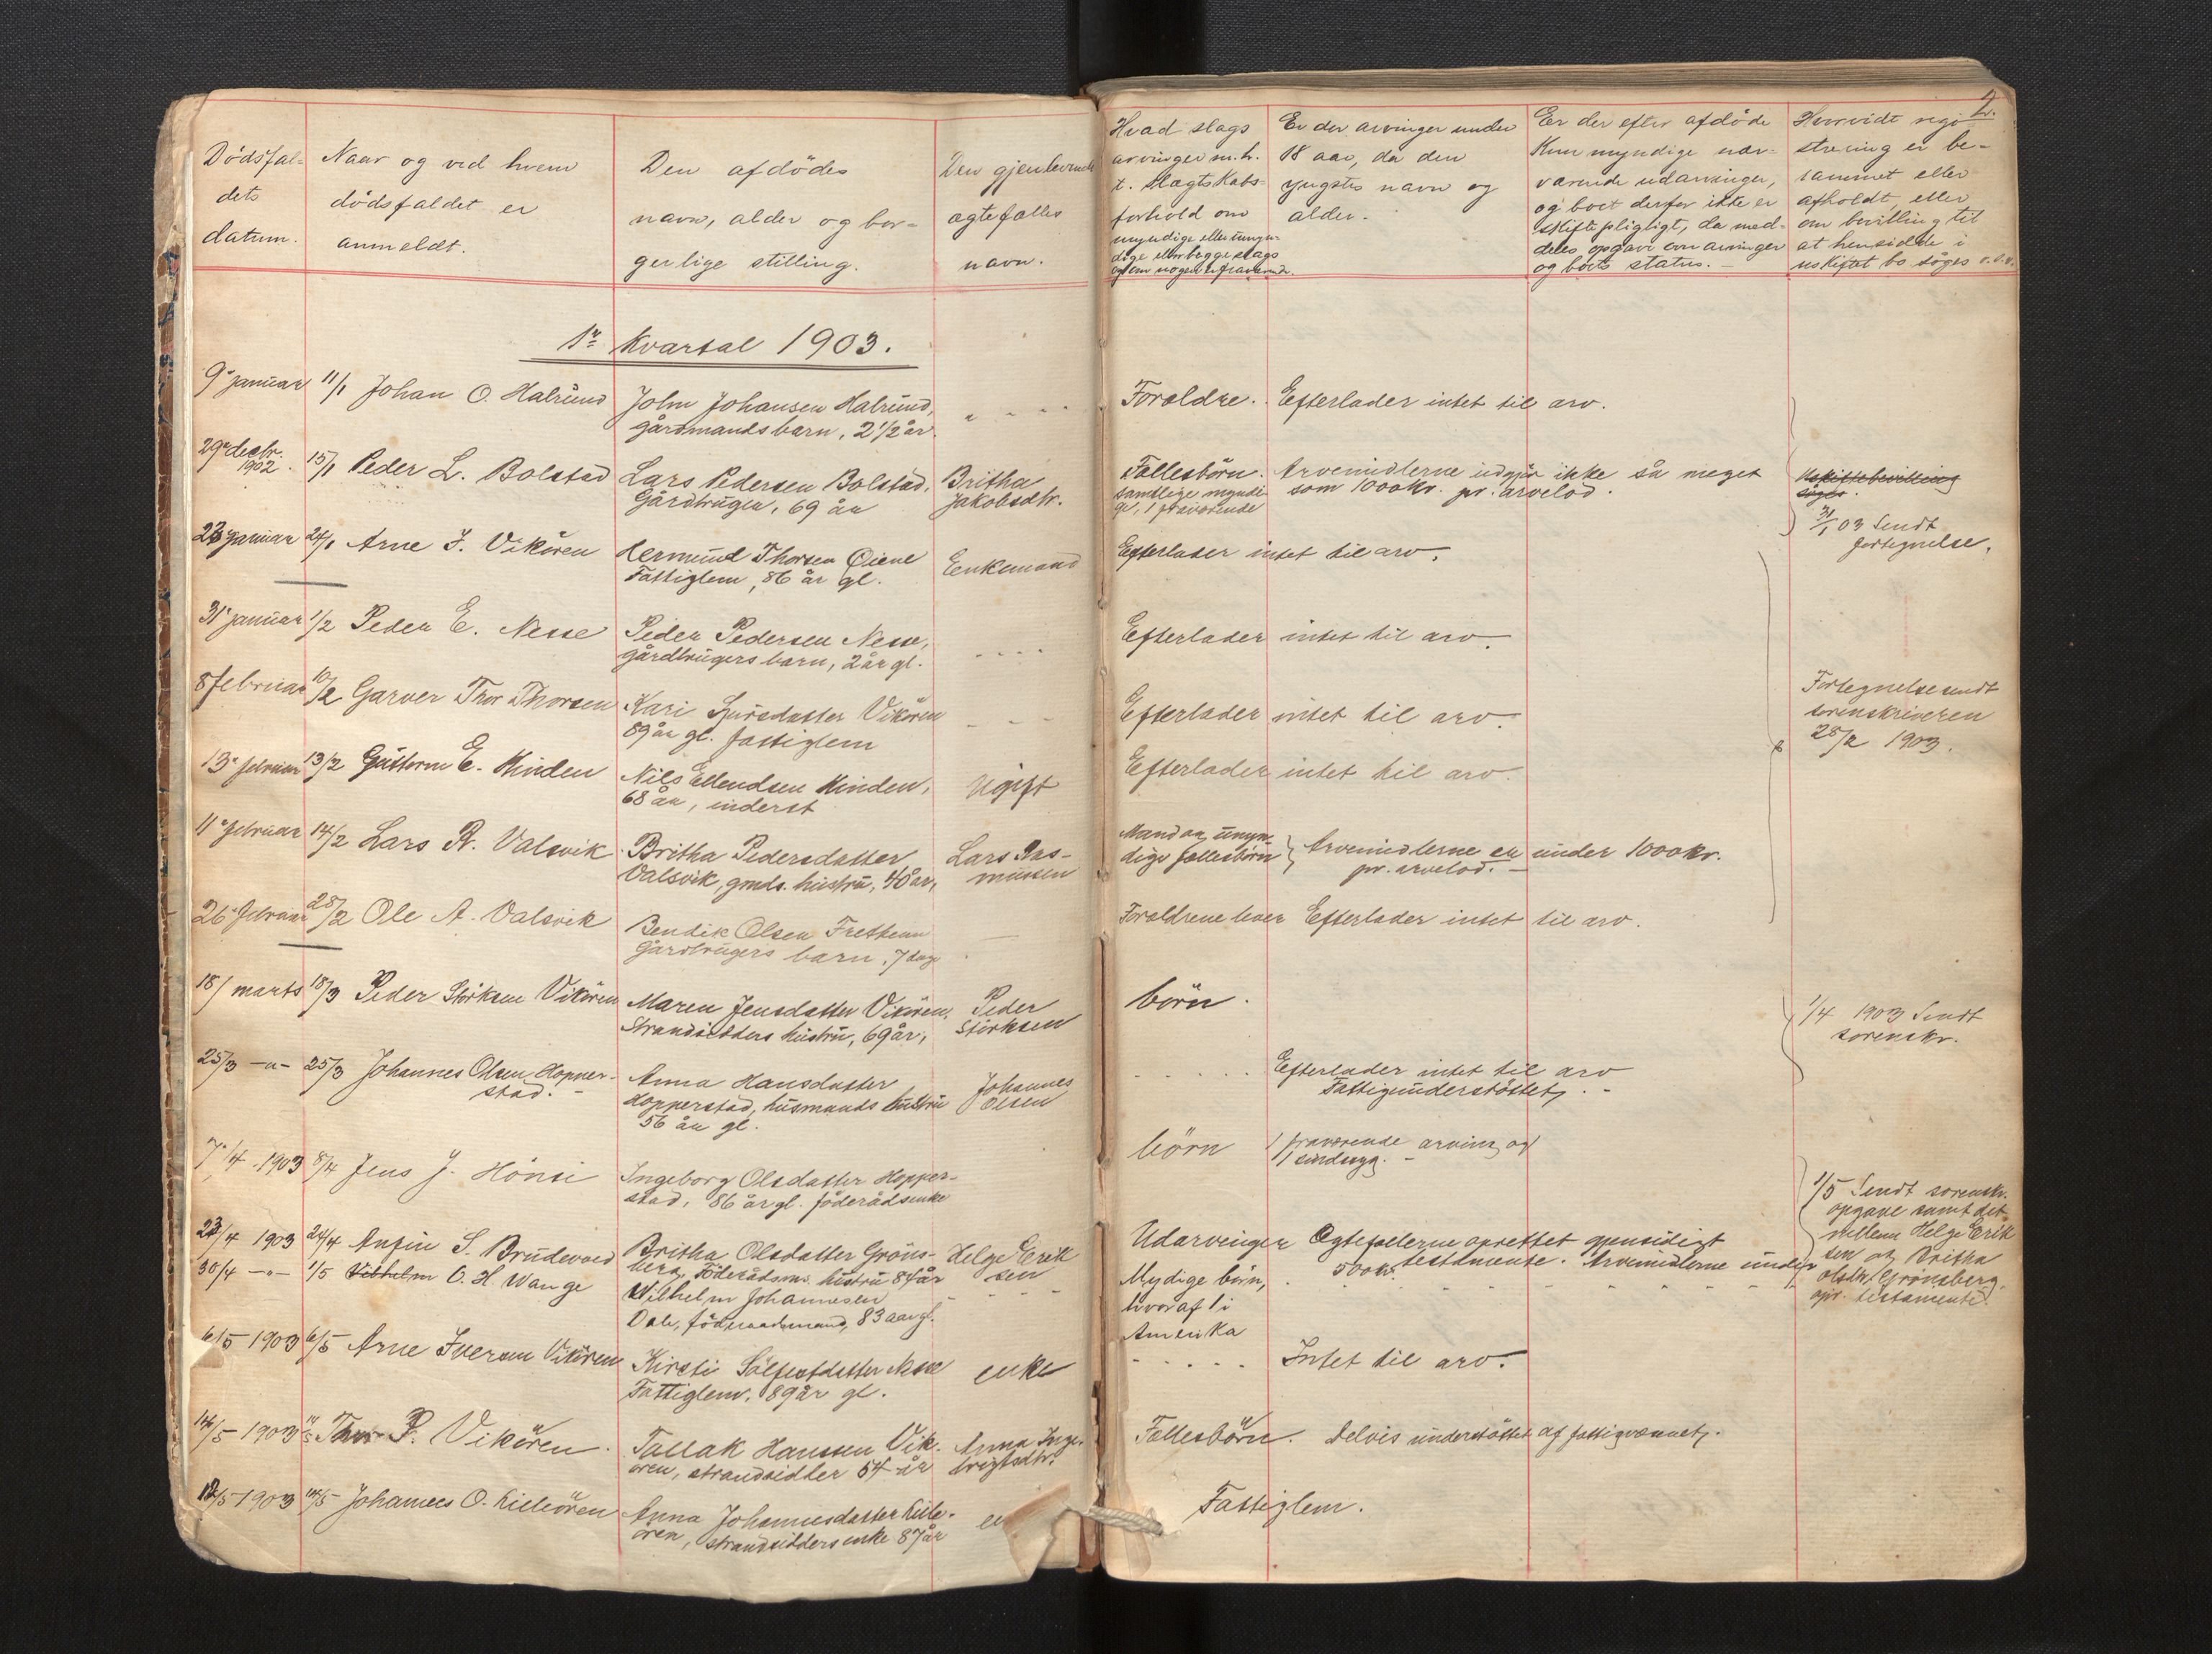 2.
Dödsfal-
dets
datum.
Naar og ved hvem
dödsfaldet er
anmeldt.
Den afdödes
navn, alder og bor-
gerlige stilling.
Den gjenlevende
ægtefælles
navn.
Hvad slags
arvinger m. h.
t. slægtskabs-
forhold om
myndige eller umyn-
dige eller begge slags
og om nogen er fraværende.
Er der arvinger under
18 aar, da den
yngstes navn og
alder.
Er der efter afdöde
kun myndige nær-
værende udarvinger,
og boet derfor ikke er
skiftepligtigt, da med-
deles opgave om arvinger
og boets status. -
Hvorvidt regi-
strering er be-
rammet eller
afholdt, eller
om bevilling til
at hensidde i
uskiftet bo söges o.s.v.
1ste Kvartal 1903.
9de januar 11/1 Johan O. Halsund
John Johansen Halsund,
gårdmands barn, 2 1/2 år.
Forældre. Efterlader intet til arv.
29de decbr.
1902. 15/1 Peder L. Bolstad
Lars Pedersen Bolstad,
Gårdbruger, 69 år
Britha
Jakobsdtr.
Fællesbörn.
samtlige myndi-
ge, 1 fraværende
Arvemidlerne udgjör ikke så meget
som 1000 kr. pr. arvelod.
Uskiftebevilling
söges.
31/1 03 Sendt
fortegnelse.
23 januar 24/1 Arne I. Vikören
Hermund Thorsen Öiene
Fattiglem, 86 år gl.
Enkemand
Efterlader intet til arv.
31 januar 1/2 Peder E. Nesse
Peder Pedersen Nesse,
gårdbrugers barn, 2 år gl.
Efterlader intet til arv.
8 februar 10/2 Garver Thor Thorsen
Kari Sjursdatter Vikören
89 år gl. fattiglem
Efterlader intet til arv.
Fortegnelse sendt
sorenskriveren
28/2 1903.
13de februar 13/2 Guttorm E. Hinden
Nils Ellendsen Hinden,
68 år, inderst
Ugift
Efterlader intet til arv.
11te februar 14/2 Lars R. Valsvik
Britha Pedersdatter
Valsvik, grmds. hustru, 40 år,
Lars Ras-
mussen
Mand og umyn-
dige fællesbörn
Arvemidlerne er under 1000 kr.
pr. arvelod. -
26 februar 28/2 Ole A. Valsvik
Bendik Olsen Fretheim
Gårdbrugers barn, 7 dage
Forældrene lever Efterlader intet til arv.
18/ marts 18/3 Peder Störksen Vikören
Maren Jensdatter Vikören.
Strandsidders hustru, 69 år,
Peder
Störksen
börn.
1/4 1903 Sendt
sorenskr.
25/3 -"- 25/3 Johannes Olsen Hopper-
stad. -
Anna Hansdatter
Hopperstad, husmands hustru
56 år gl.
Johannes
Olsen
Efterlader intet til arv
Fattigunderstöttet. -
7/4 1903 8/4 Jens J. Hönsi
Ingeborg Olsdatter Hopper-
stad, 86 år gl. föderådsenke
börn
1 fraværende arving og
1 sindsyg. -
23/4 1903 24/4 Anfin S. Brudevold
Britha Olsdatter Gröns-
berg, Föderådsm. hustru 84 år
Helge Erik
sen
Udarvinger
Ægtefællerne oprettet gjensidigt
testamente. Arvemidlerne under
500 kr.
1/5 Sendt sorenskr.
opgave samt det
mellem Helge Erik
sen og Britha
Olsdtr. Grönsberg
opr. testamente.
30/4 -"- 1/5 Vilhelm O. H. Wange
Wilhelm Johannesen
Dale, föderaadsmand, 83 aar gl.
Mydige börn,
hvoraf 1 i
Amerika
6/5 1903 6/5 Arne Iversen Vikören
Kirsti Sölfestdatter Nesse
Fattiglem, 89 år gl.
enke
Intet til arv.
14/5 1903 14/5 Thor P. Vikören.
Tallak Hanssen Vik-
ören, strandsidder 54 år
Anna Inge-
brigtsdtr.
Fællesbörn. Delvis understöttet af fattigvæsenet.
12/5 1903 14/5 Johannes O. Lilleören
Anna Johannesdatter Lille-
ören, strandsidders enke 87 år
Fattiglem.